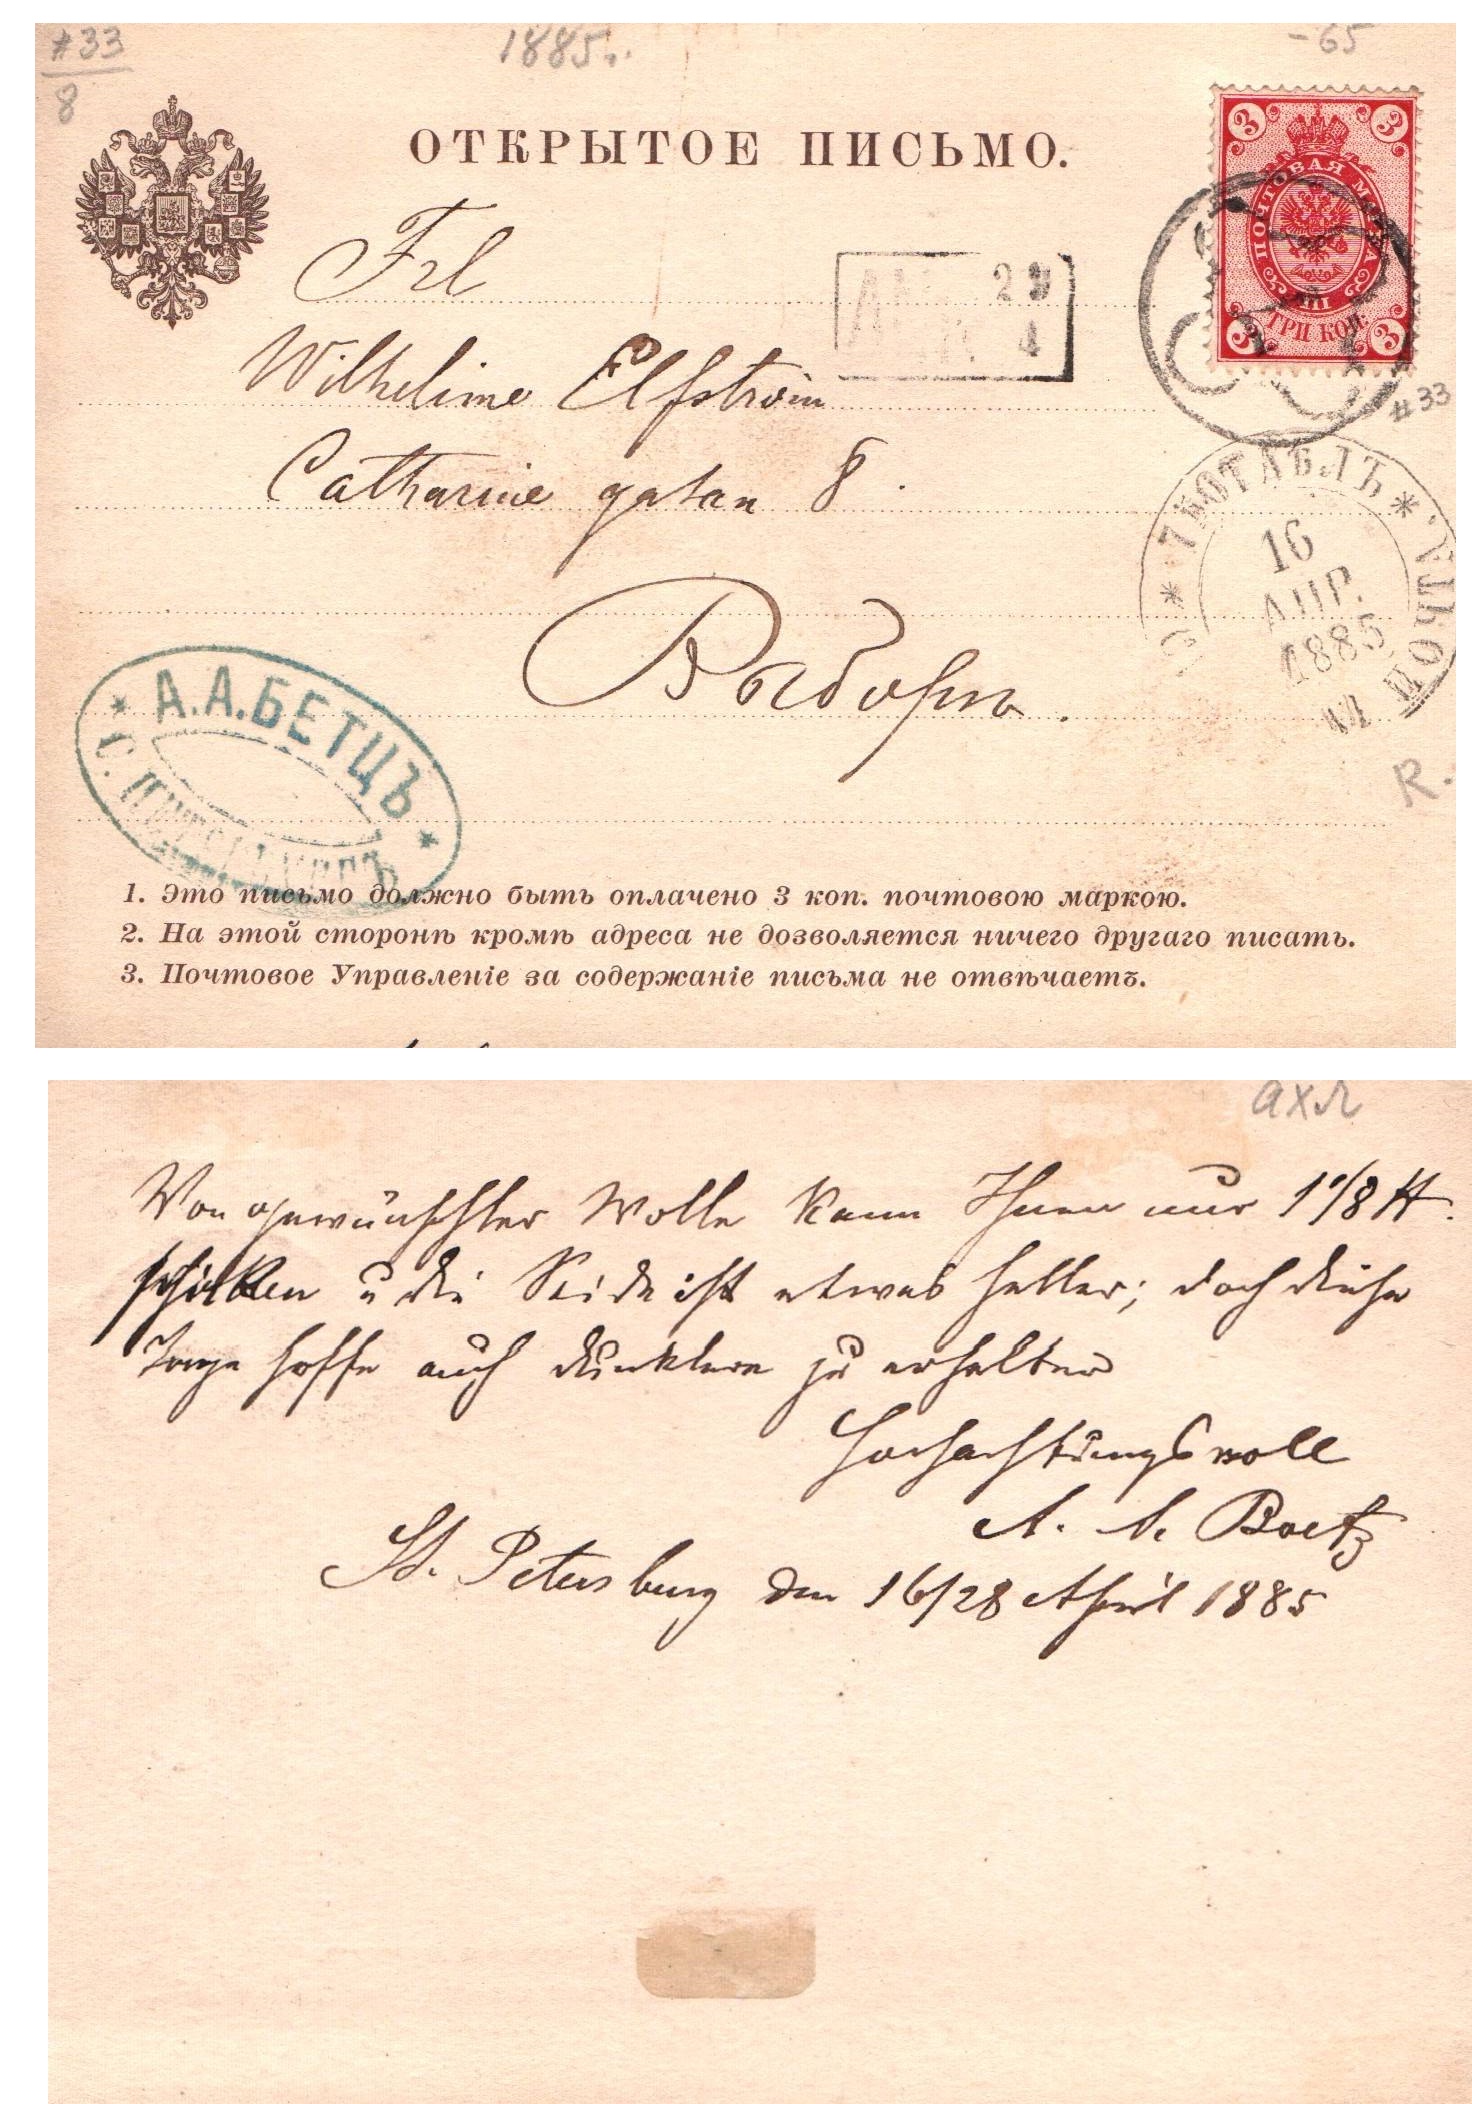 #33
8
1885г.
-65
ОТКРЫТОЕ ПИСЬМО.
3 3
ПОЧТОВАЯ МАРКА
ТРИ КОП.
3 3
Frl
29
4
Wilhelmine Elfström
#33
Catharine gatan 8.
7 ПОЧТА.
16
АПР.
1885
Выборгъ.
А.А.БЕТЦЪ
С. ПЕТЕРБУРГЪ
R.
1. Это письмо должно быть оплачено 3 коп. почтовою маркою.
2. На этой сторонѣ кромѣ адреса не дозволяется ничего другаго писать.
3. Почтовое Управленіе за содержаніе письма не отвѣчаетъ.
Von gewünschter Wolle kann Ihnen nur 1 1/8 ℔.
schicken u die Seide ist etwas heller; doch diese
Tage hoffe auch dunklere zu erhalten
Hochachtungsvoll
A. A. Boetz
St. Petersburg den 16/28 April 1885